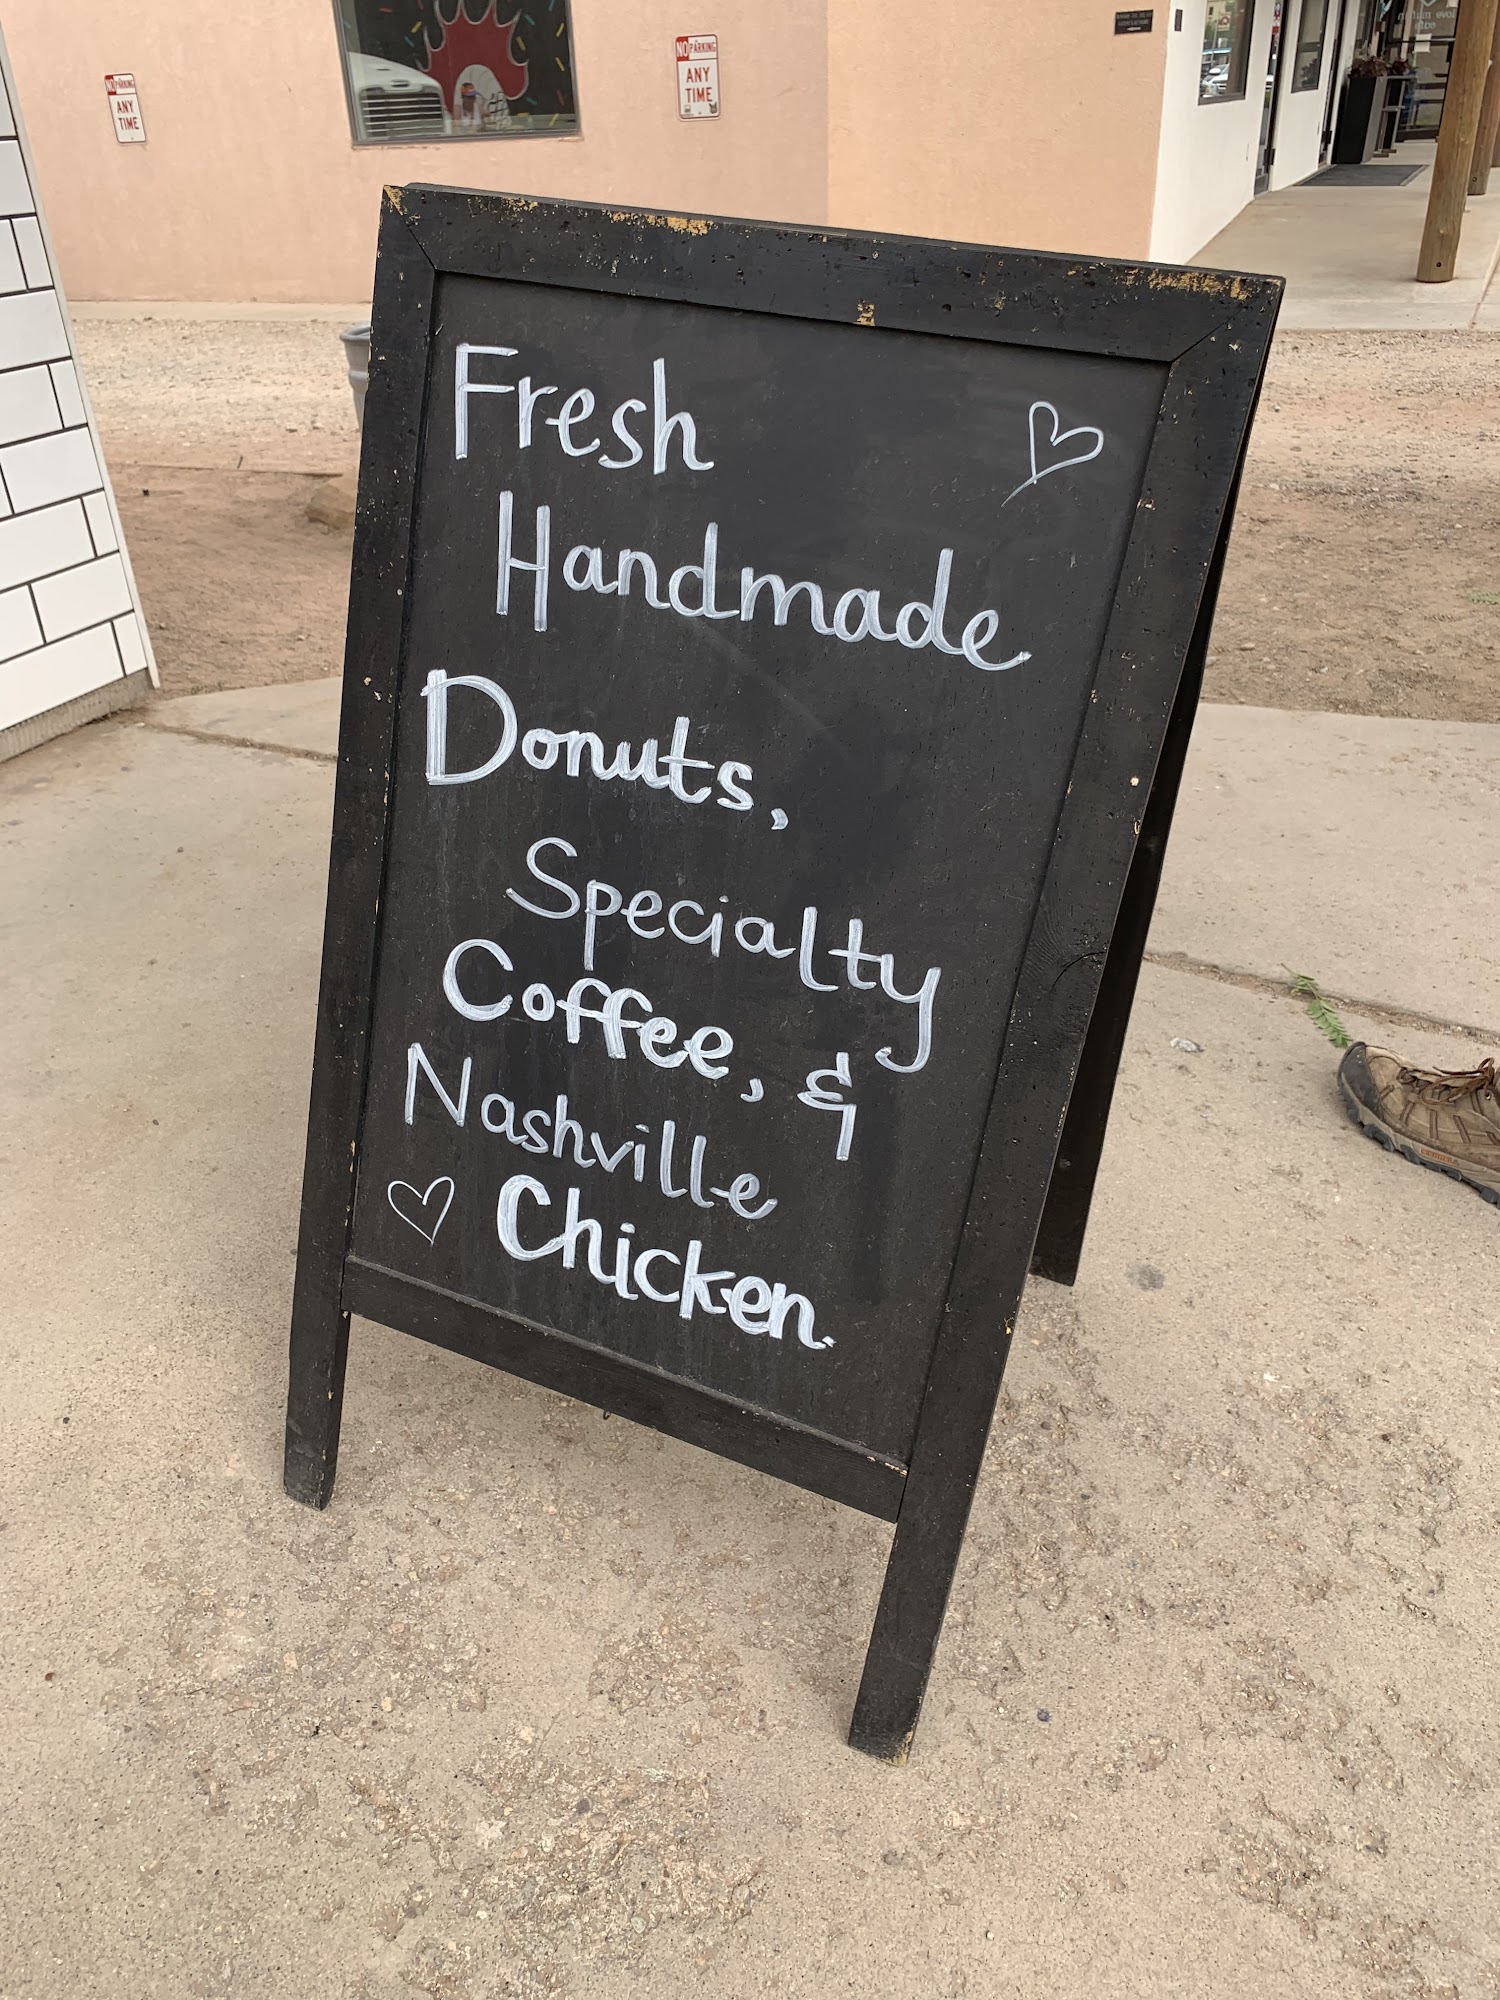 NO PARKING
ANY
TIME
NO PARKING
ANY
TIME
love muffin
cafe
Fresh
Handmade
Donuts,
Specialty
Coffee, &
Nashville
Chicken.